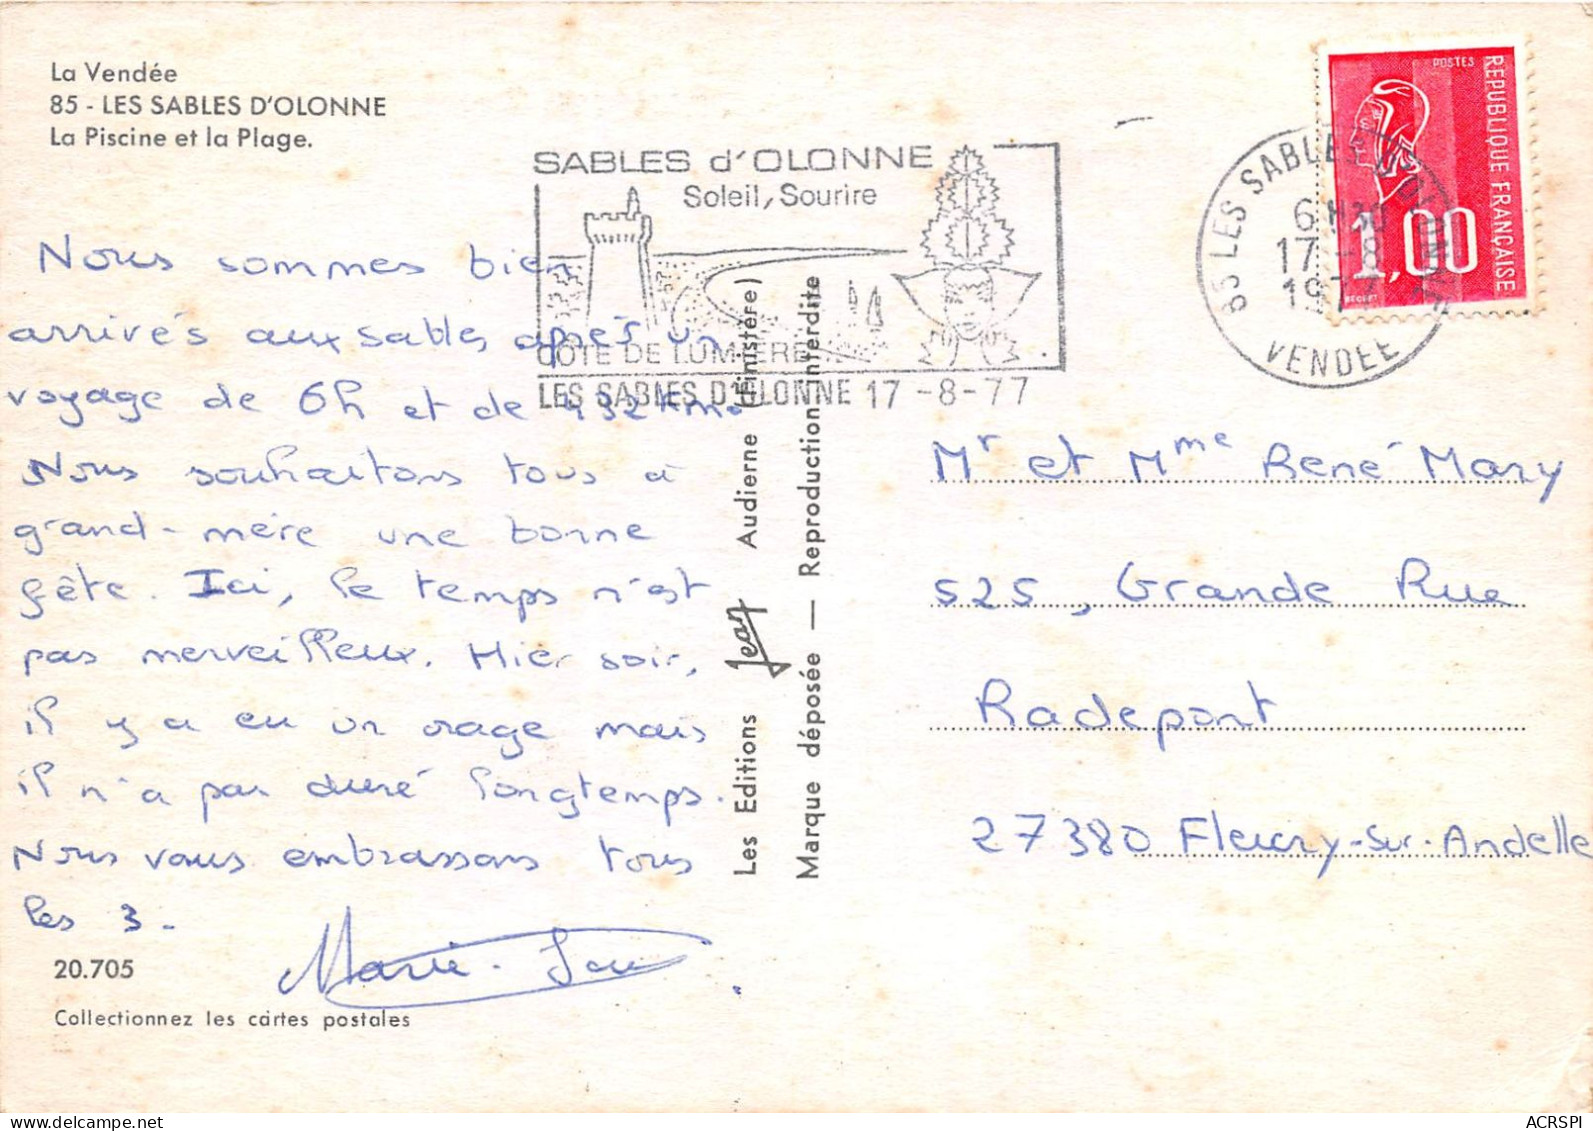 La Vendée
85 - LES SABLES D'OLONNE
La Piscine et la Plage.
Nous sommes bien
arrivés aux sables après un
voyage de 6h et de 432 km.
Nous souhaitons tous à
grand-mère une bonne
fête. Ici, le temps n'est
pas merveilleux. Hier soir,
il y a eu un orage mais
il n'a pas duré longtemps.
Nous vous embrassons tous
les 3.
Marie-
20.705
Collectionnez les cartes postales
SABLES d'OLONNE
Soleil, Sourire
COTE DE LUMIERE
LES SABLES D'OLONNE 17 -8-77
Les Editions Jean Audierne (Finistère)
Marque déposée — Reproduction interdite
POSTES
REPUBLIQUE FRANÇAISE
1,00
BEQUET
85 LES SABLES D'OLONNE
6H30
17-8
1977
VENDEE
Mr et Mme René Mary
525, Grande Rue
Radepont
27380 Fleury-sur-Andelle
delcampe.net
ACRSPI